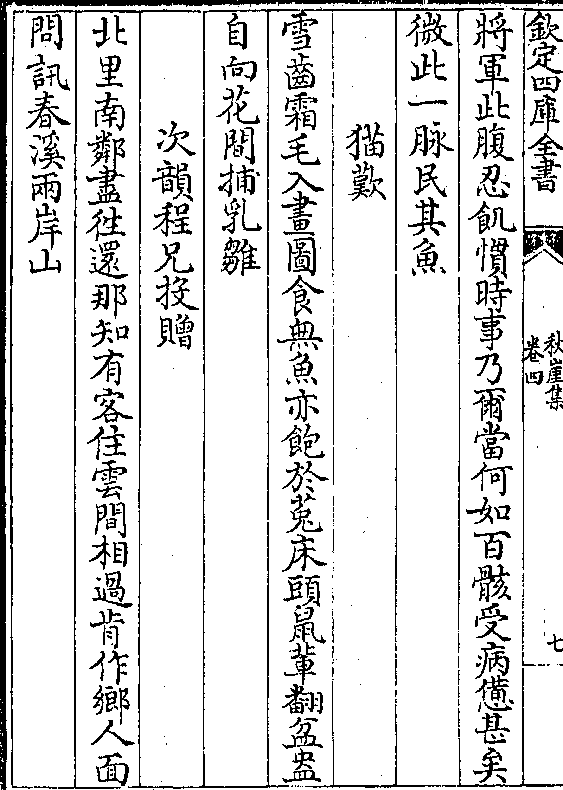 欽定四庫全書
秋崖集
卷四
七
將軍此腹忍飢慣時事乃爾當何如百骸受病憊甚矣
微此一脉民其魚
猫歎
雪齒霜毛入畫圖食無魚亦飽於菟床頭鼠輩翻盆盎
自向花間捕乳雛
次韻程兄投贈
北里南鄰盡往還那知有客住雲間相過肯作鄉人面
問訊春溪兩岸山